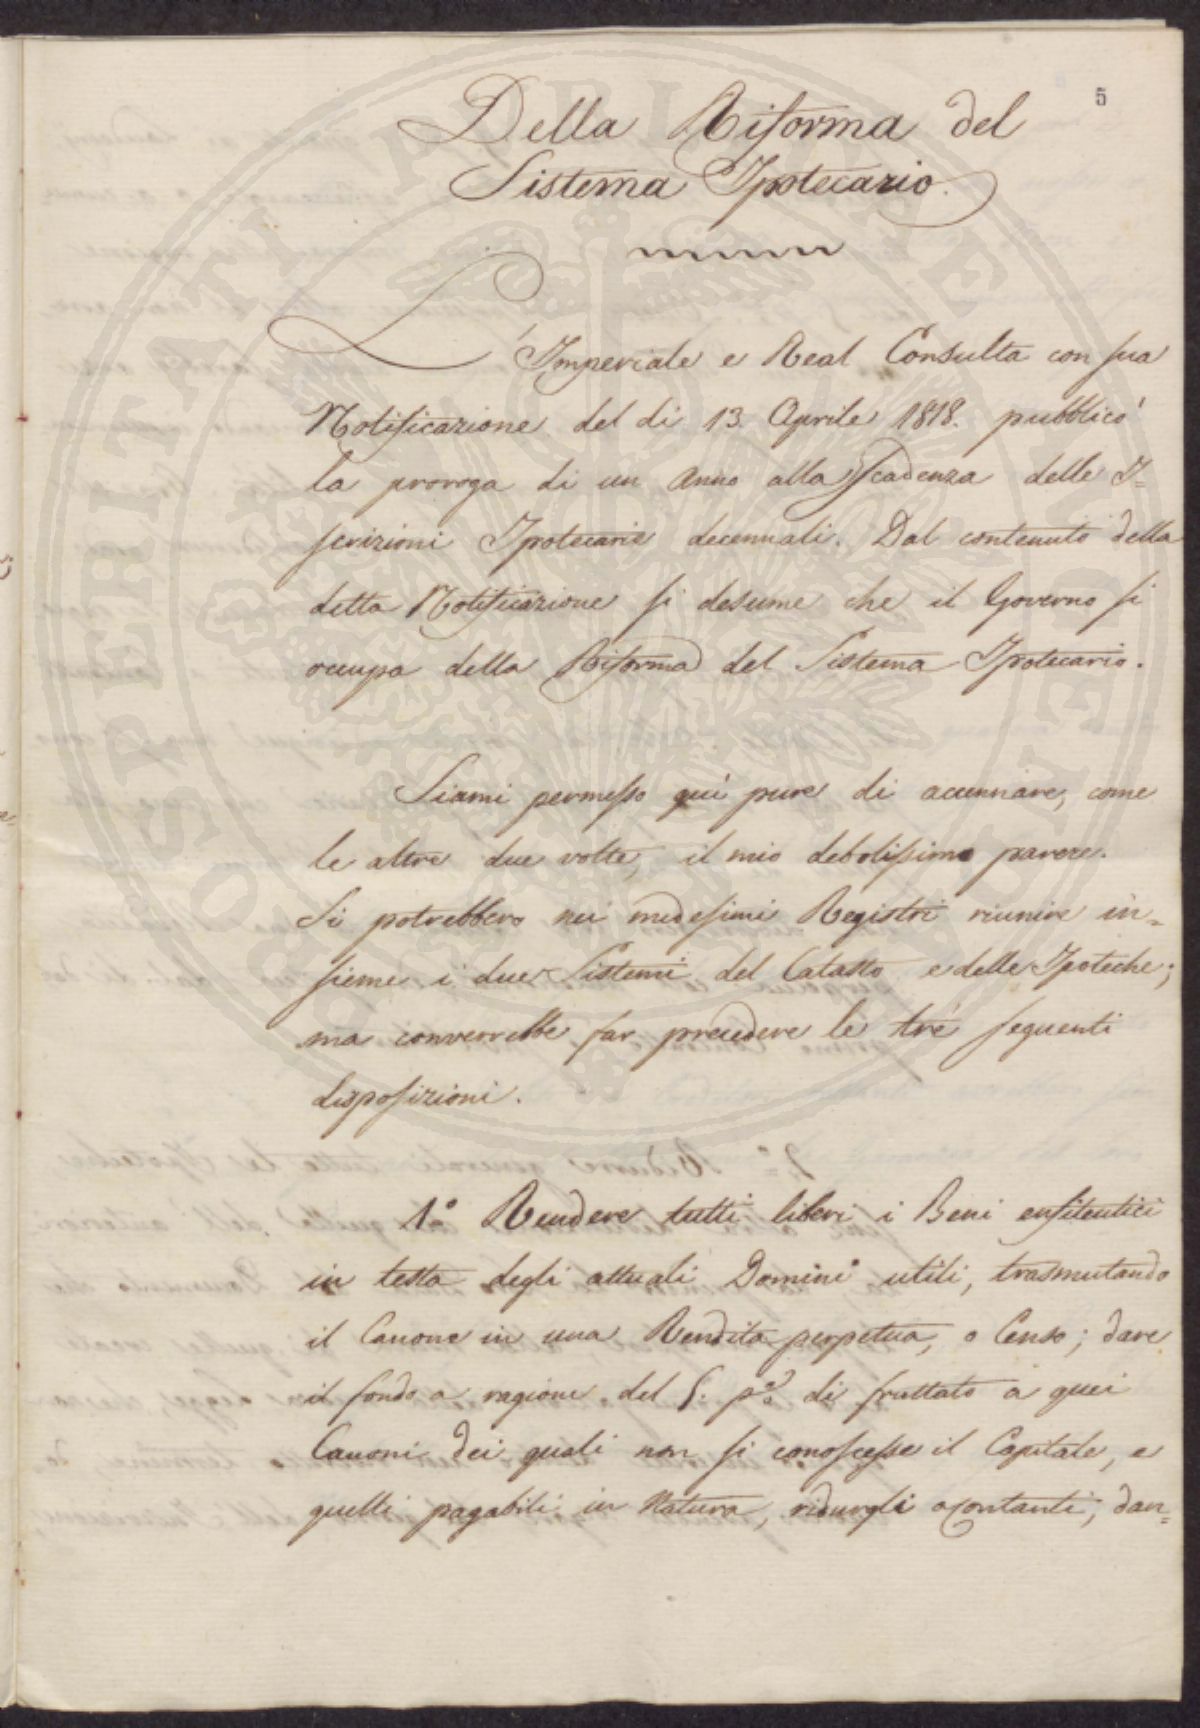 5
Della Riforma del
Sistema Ipotecario.
L'Imperiale e Real Consulta con sua
Notificazione del di 13. Aprile 1818. pubblicò
la proroga di un Anno alla Scadenza delle I=
scrizioni Ipotecarie decennali. Dal contenuto della
detta Notificazione si desume che il Governo si
occupa della Riforma del Sistema Ipotecario.
Siami permesso quì pure di accennare, come
le altre due volte, il mio debolissimo parere.
Si potrebbero nei medesimi Registri riunire in=
sieme i due Sistemi del Catasto e delle Ipoteche;
ma converrebbe far precedere le trè seguenti
disposizioni.
1.° Rendere tutti liberi i Beni enfiteutici
in testa degli attuali Domini utili, trasmutando
il Canone in una Rendita perpetua, o Censo; dare
il fondo a ragione del 5. p.% di fruttato a quei
Canoni dei quali non si conoscesse il Capitale, e
quelli pagabili in Natura, ridurgli a Contanti; dan=
PROSPERITATI PUBLICAE AUGENDAE